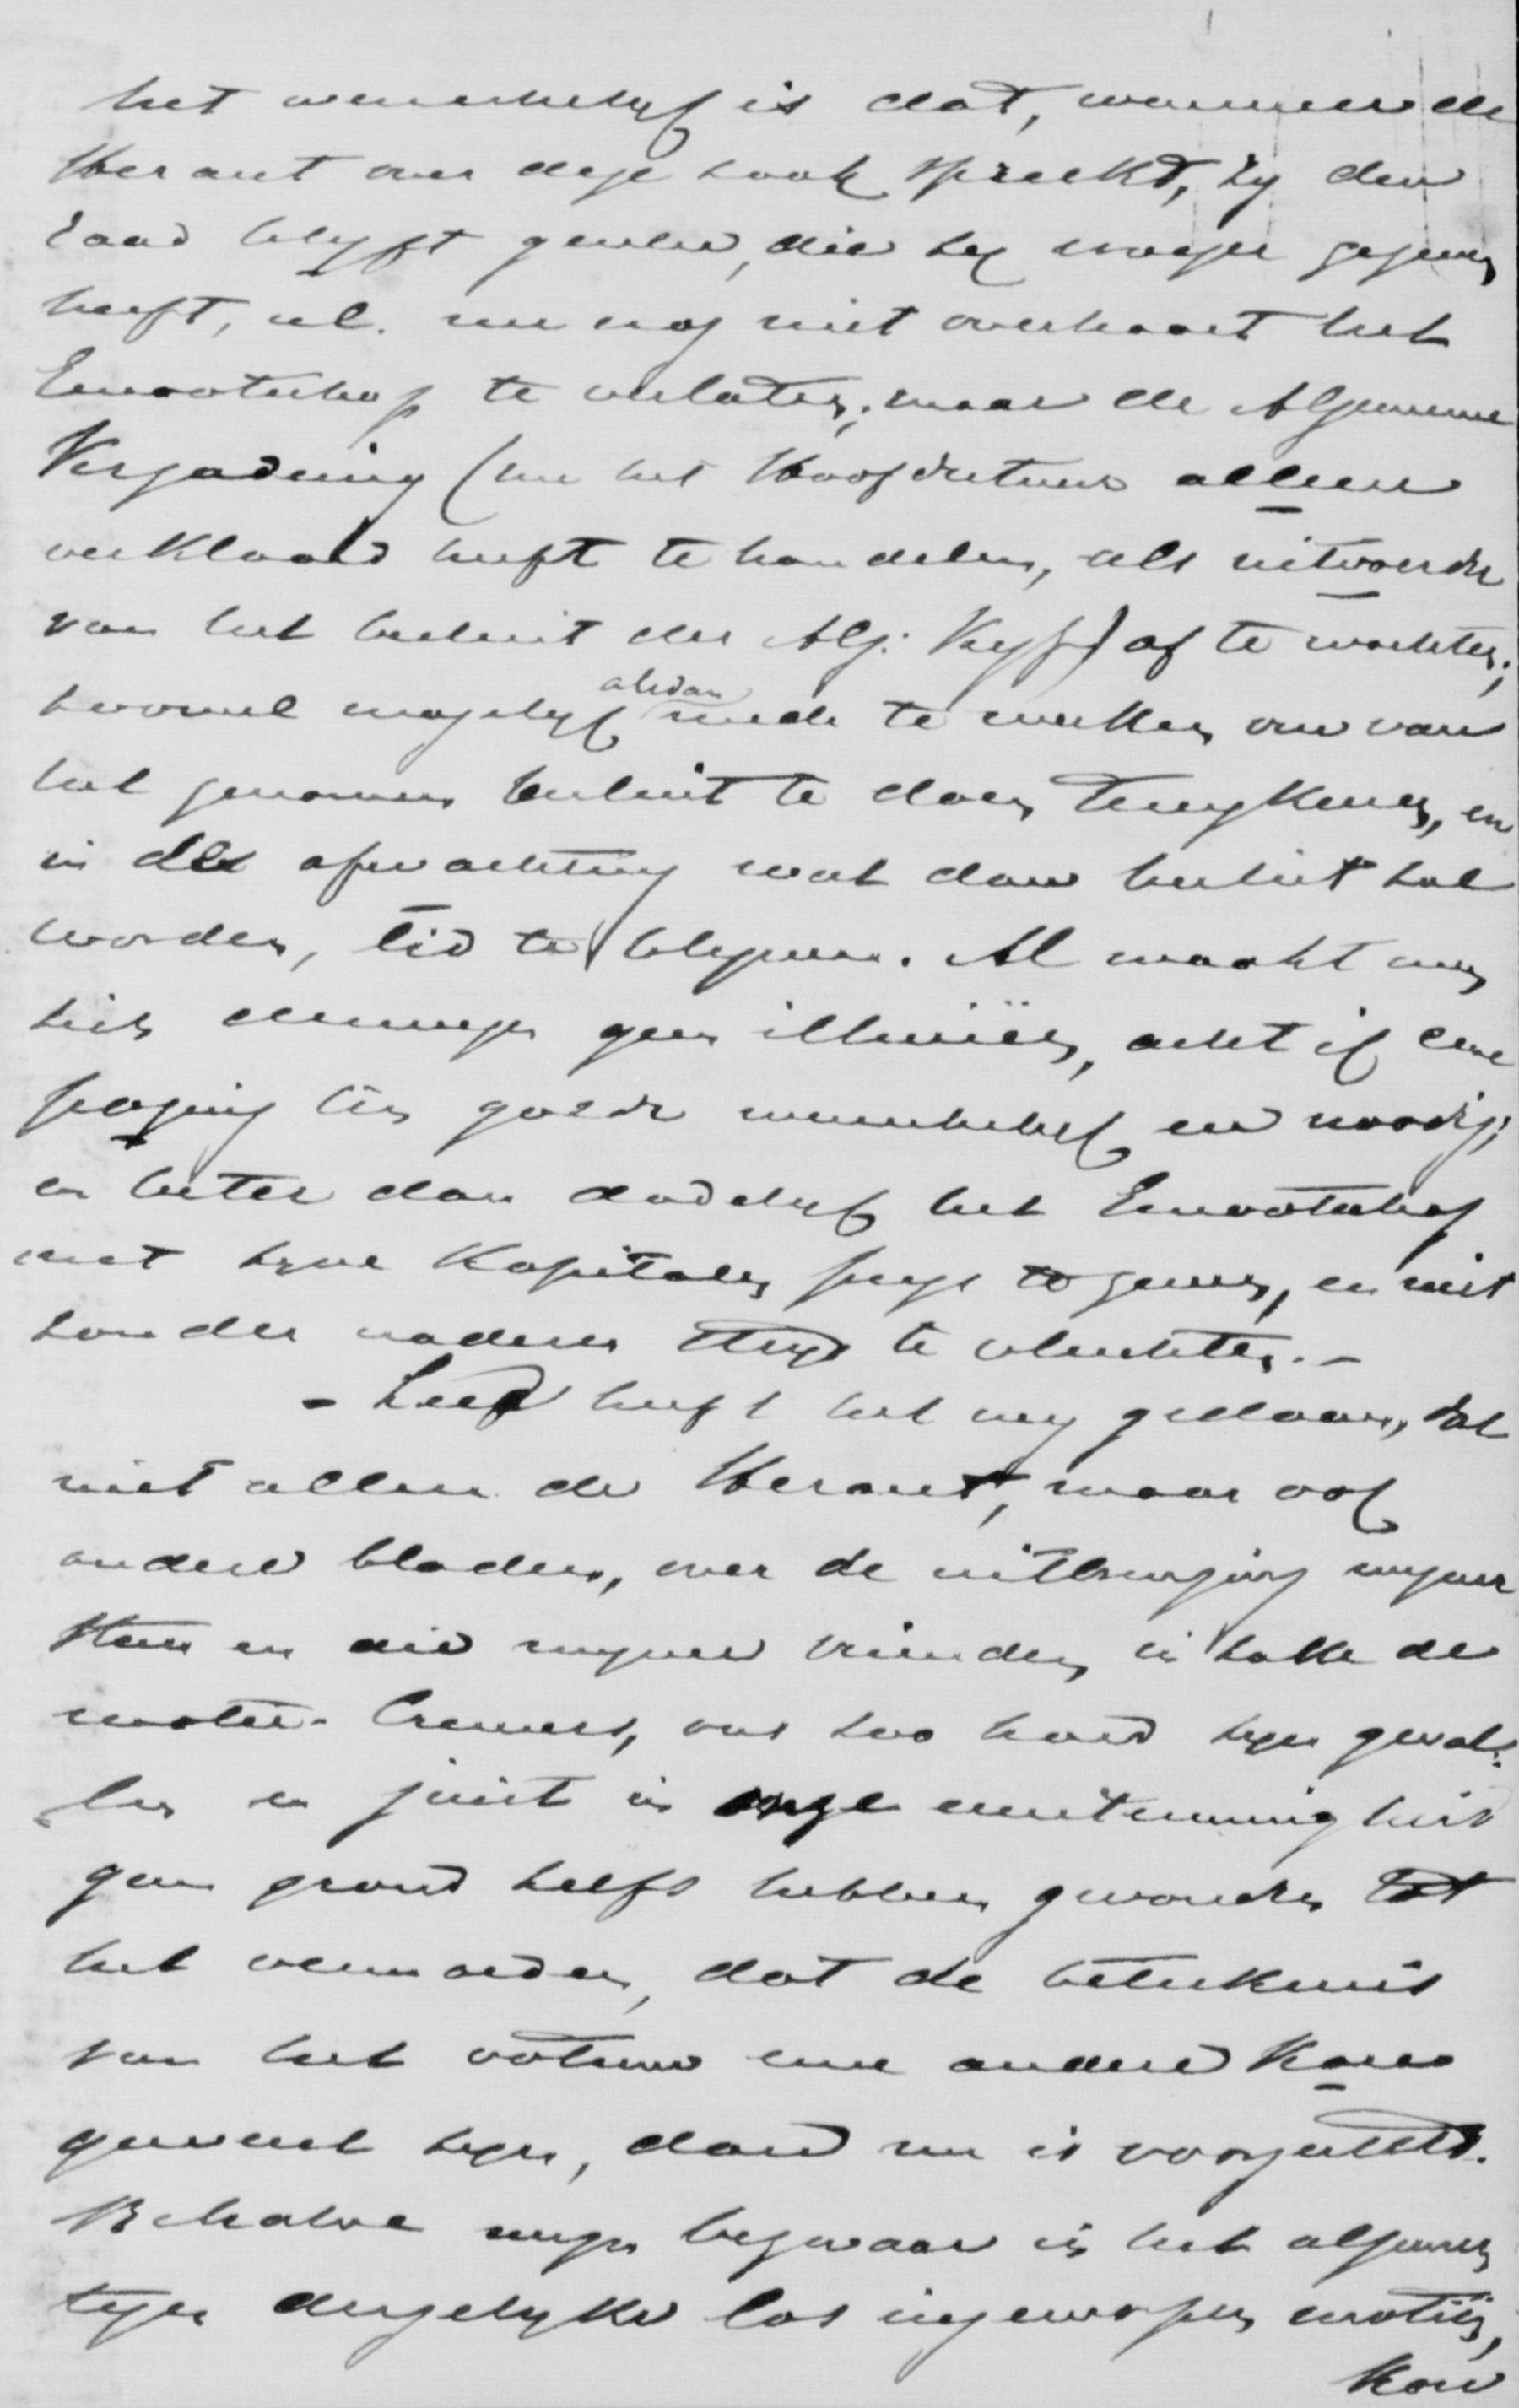 het wenschelijk is dat, wanneer de
Heraut over deze zaak spreekt, hij den
raad blijft geven, dien hij vroeger gegeven
heeft, nl. nu nog niet overhaast het
Genootschap te verlaten; maar de Algemeene
Vergadering (nu het Hoofdbestuur alleen
verklaard heeft te handelen, als uitvoerder
van het besluit der Alg. Verg.) af te wachten;
zooveel mogelijk alsdan mede te werken om van
het genomen besluit te doen terugkomen, en
in de afwachting wat dan beslist zal
worden, lid te blijven. Al maakt men
zich dienaangaande geen illusiën, acht ik eene
poging ten goede wenschelijk en noodig;
en beter dan dadelijk het Genootschap
met zijne Kapitalen prijs te geven, en niet
zonder nadere strijd te vluchten.-
- Leed heeft het mij gedaan, dat
niet alleen de Heraut, maar ook
andere bladen, over de uitbrenging mijner
stem en die mijner vrienden, in zake de
motie-Cremers, ons zoo hard zijn geval-
len en juist in onze eenstemmigheid
geen grond zelfs hebben gevonden tot
het vermoeden, dat de beteekenis
van het votum eene andere kan
geweest zijn, dan nu is voorgesteld.
Behalve mijn bezwaar in het algemeen
tegen dergelijke los ingeworpen motiën,
kon